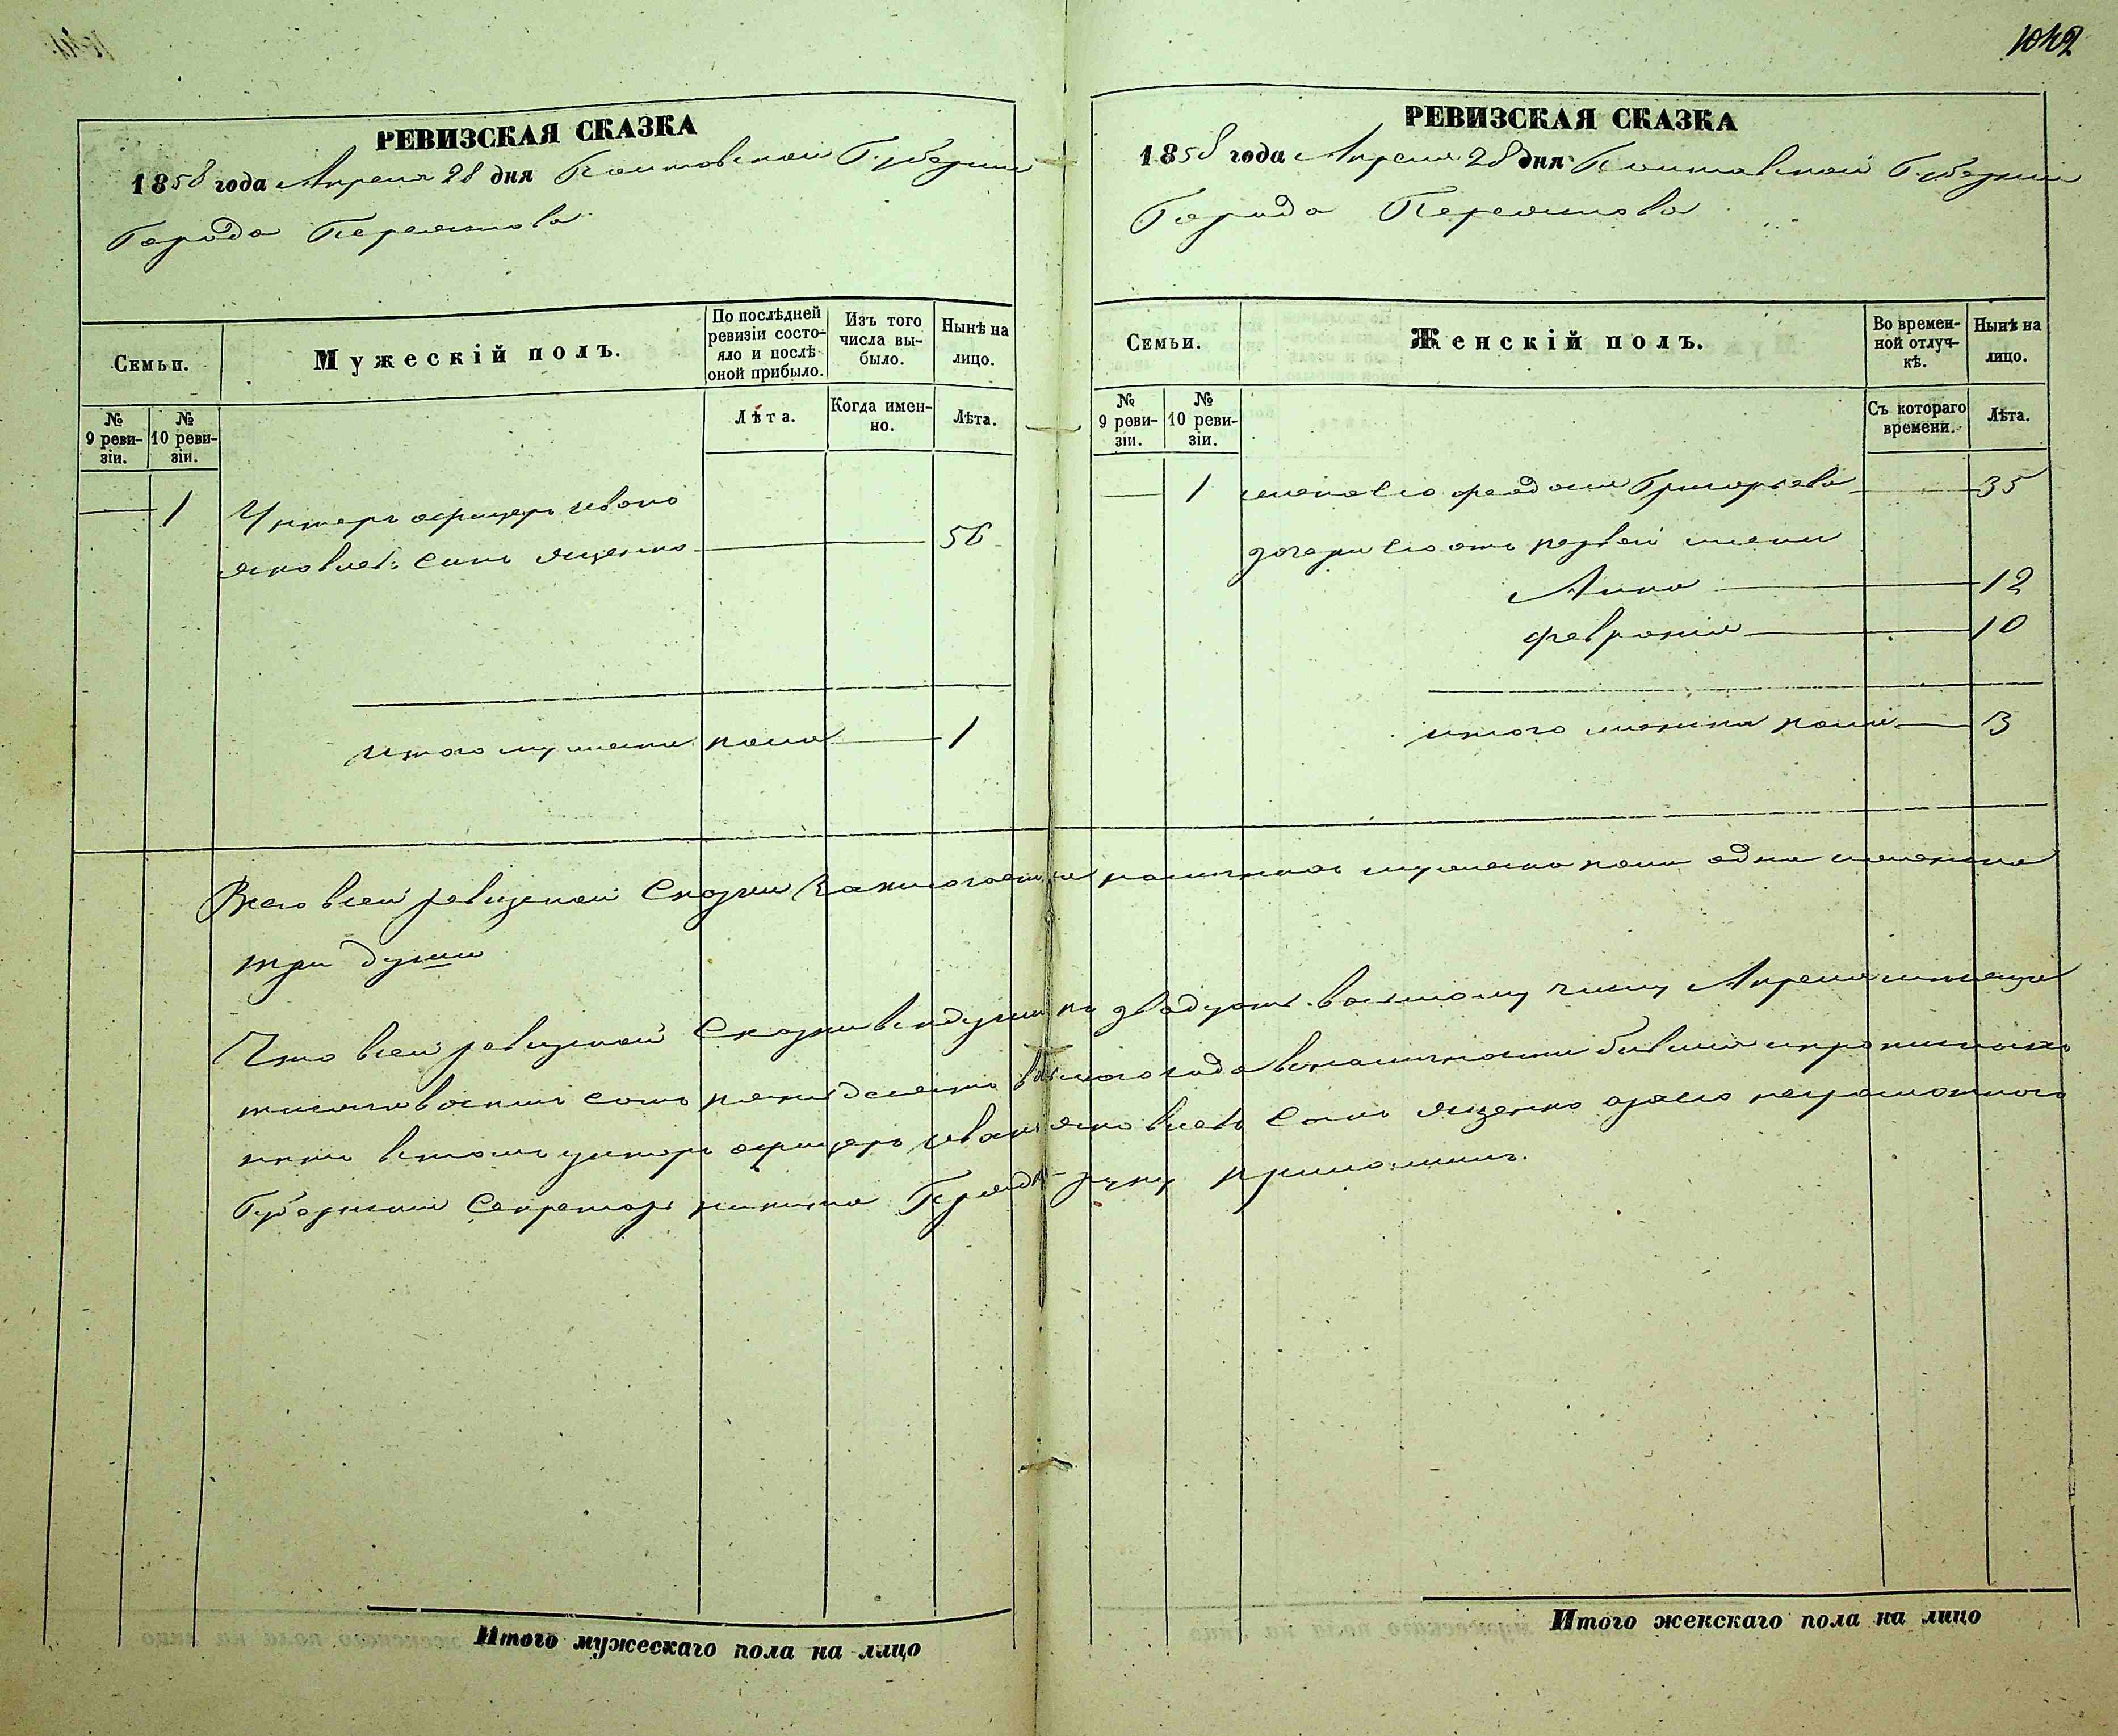 1042
РЕВИЗСКАЯ СКАЗКА
1858 года Апреля 28 дня Полтавской Губернии
Города Переяслова
Семьи.
Мужескій полъ.
По послѣдней ревизіи состояло и послѣ оной прибыло.
Изъ того числа выбыло.
Нынѣ на лицо.
№ 9 ревизіи.
№ 10 ревизіи.
Лѣта.
Когда именно.
Лѣта.
1 Унтеръ офицеръ Иванъ
Яковлевъ сынъ Яценко 56
Итого мужеска пола 1
РЕВИЗСКАЯ СКАЗКА
1858 года Апреля 28 дня Полтавской Губернии
Города Переяслова
Семьи.
Женскій полъ.
Во временной отлучкѣ.
Нынѣ на лицо.
№ 9 ревизіи.
№ 10 ревизіи.
Съ котораго времени.
Лѣта.
1 жена его Феодосия Григорьева 35
дочери его отъ первой жены
Анна 12
Феврония 10
итого женска пола 3
Всего в сей ревизской сказки заключается наличнаго мужеска пола одна женска
три души
Что в сей ревизской сказки вс души по двадцать восьмому числу Апреля месяца
тысяча восемь сотъ пятьдесятъ восмого года в наличности
в томъ унтеръ офицеръ Иванъ Яковлевъ сынъ Яценко а за его неграмотного
Губернский Секретарь руку приложилъ.
Итого мужескаго пола на лицо
Итого женскаго пола на лицо